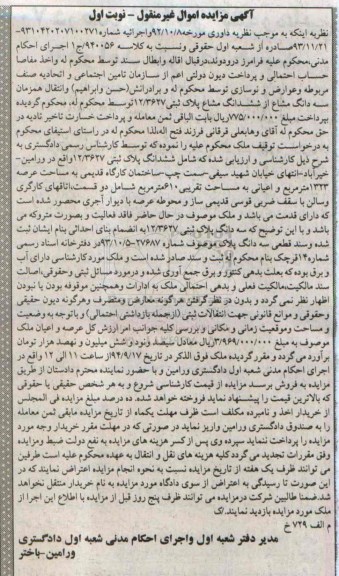 آگهی مزایده اموال غیرمنقول - نوبت اول
نظریه اینکه به موجب نظریه داوری مورخه ۹۲/۱۰/۸ واجرائیه شماره ۹۳۱۰۴۲۰۲۰۷۱۰۰۲۷۱-
۹۳/۱۱/۲۱ صادره از شعبه اول حقوقی ونسبت به کلاسه ۹۴۰۰۵۶/ج۱ اجرای احکام
مدنی،محکوم علیه فرامرز درودوند،درقبال اقاله وابطال سند توسط محکوم له واخذ مفاصا
حساب احتمالی و پرداخت دیون دولتی اعم از سازمان تامین اجتماعی و اتحادیه صنف
مربوطه وعوارض و نوسازی توسط محکوم له و برادرانش(حسن وابراهیم) وانتقال همزمان
سه دانگ مشاع از ششدانگ مشاع پلاک ثبتی ۱۲/۳۶۲۷ توسط محکوم له، محکوم گردیده
بپرداخت مبلغ ۷۷۵/۰۰۰/۰۰۰ریال بابت الباقی ثمن معامله و پرداخت خسارت تاخیر تادیه در
حق محکوم له آقای وهابعلی قرقانی فرزند فتح اله،لذا محکوم له در راستای استیفای محکوم
به درخواست توقیف ملک محکوم علیه را نموده که توسط کارشناس رسمی دادگستری به
شرح ذیل کارشناسی و ارزیابی شده که شامل ششدانگ پلاک ثبتی ۱۲/۳۶۲۷ واقع در ورامین-
خیرآباد-انتهای خیابان شهید سیفی-سمت چپ-ساختمان کارگاه قدیمی به مساحت عرصه
۱۳۲۳مترمربع و اعیانی به مساحت تقریبی ۶۱۰مترمربع شامل دو قسمت،اتاقهای کارگری
وسالن با سقف ضربی قوسی قدیمی ساز و محوطه عرصه با دیوار آجری محصور شده است
که دارای قدمت می باشد و ملک موصوف در حال حاضر فاقد فعالیت و بصورت متروکه می
باشد و با این توضیح که سه دانگ پلاک ثبتی ۱۲/۳۶۲۷ به انضمام بنای احداثی بنام ایشان ثبت
شده وسند قطعی سه دانگ پلاک موصوف شماره ۲۷۶۸۷-۹۳/۱۰/۵ دردفترخانه اسناد رسمی
شماره۱۴قرچک بنام محکوم له ثبت و سند صادر شده است و ملک مورد کارشناسی دارای آب
و برق بوده که بعلت بدهی کنتور و برق جمع آوری شده و درمورد مسائل ثبتی وحقوقی،اصالت
سند مالکیت،مالکیت فعلی و بدهی احتمالی ملک به ادارات وهمچنین موقوفه بودن یا نبودن
اظهار نظر نمی گردد و بدون در نظر گرفتن هرگونه معارض ومتصرف وهرگونه دیون حقیقی
وحقوقی و موانع قانونی جهت انتقالات ثبتی (ازجمله بازداشتی احتمالی) و باتوجه به وضعیت
و مساحت وموقعیت زمانی و مکانی و بررسی کلیه جوانب امر ارزش کل عرصه و اعیان ملک
موصوف به مبلغ ۳/۹۶۹/۰۰۰/۰۰۰ریال معادل سیصد ونود و شش میلیون و نهصد هزار تومان
برآورد می گردد و مقرر گردیده ملک فوق الذکر در تاریخ ۹۴/۹/۱۷از ساعت ۱۱ الی ۱۲ واقع در
اجرای احکام مدنی شعبه اول دادگستری ورامین و با حضور نماینده محترم دادستان از طریق
مزایده به فروش برسد مزایده از قیمت کارشناسی شروع و به هر شخص حقیقی یا حقوقی
که بالاترین قیمت را پیشنهاد نماید فروخته خواهد شد. ده درصد مبلغ مزایده فی المجلس
از خریدار اخذ و نامبرده مکلف است ظرف مهلت یکماه از تاریخ مزایده مابقی ثمن معامله
را به صندوق دادگستری ورامین واریز نماید در صورتی که در مهلت مقرر خریدار وجه مورد
مزایده را پرداخت ننماید سپرده وی پس از کسر هزینه های مزایده به نفع دولت ضبط ومزایده
وفق مقررات تجدید می گردد کلیه هزینه های نقل و انتقال به عهده محکوم علیه است طرفین
می توانند ظرف یک هفته از تاریخ مزایده نسبت به نحوه انجام مزایده اعتراض نمایند که در
این صورت تا رسیدگی به اعتراض از سوی دادگاه مورد مزایده به نام خریدار منتقل نخواهد
شد.ضمنا طالبین شرکت درمزایده می توانند ظرف پنج روز قبل از مزایده با اطلاع این اجرا از
ملک مورد مزایده بازدید نمایند./ک
م الف ۷۲۹ خ
مدیر دفتر شعبه اول واجرای احکام مدنی شعبه اول دادگستری
ورامین-باختر